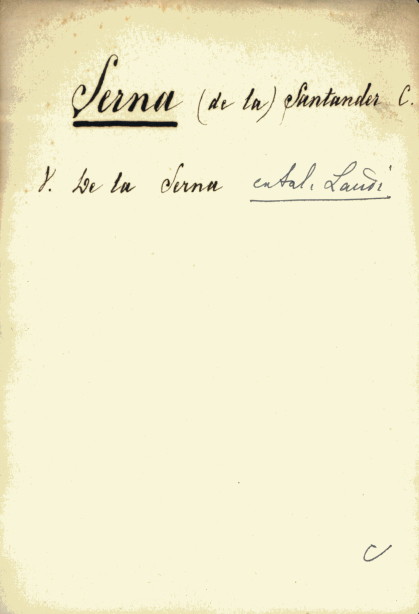 Serna (de la) Santander C.
V. De la Serna catal. Landi
C